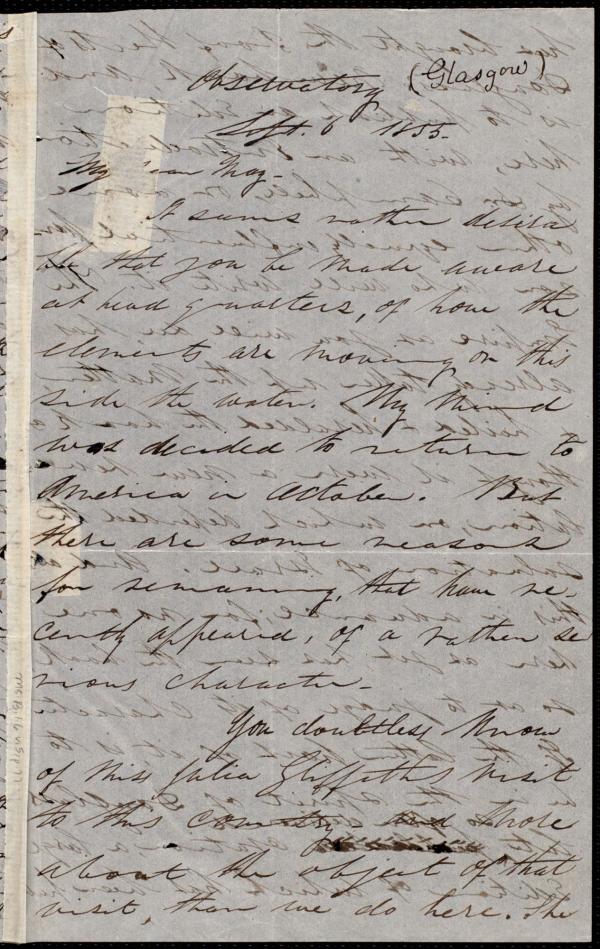 Observatory (Glasgow)
Sept. 6 1855.
My dear May-
It seems rather desira
ble that you be made aware
at head quarters, of how the
elements are moving on this
side the water. My mind
was decided to return to
America in October. But
there are some reasons
for remaining, that have re-
cently appeared, of a rather se
rious character-
You doubtless know
of Miss Julia Griffiths visit
to this country- and more
about the object of that
visit, than we do here. She